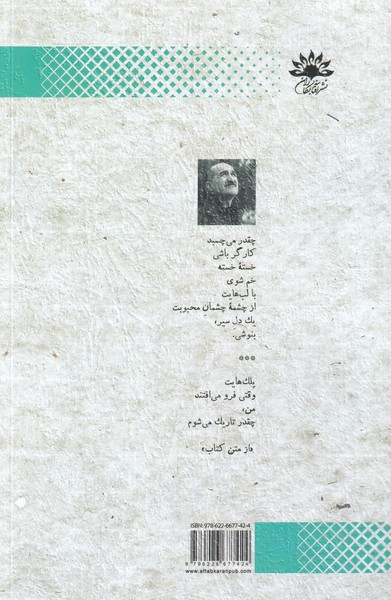 نشر آفتابکاران
چقدر می‌چسبد
کارگر باشی
خستهٔ خسته
خم شوی
با لب‌هایت
از چشمهٔ چشمان محبوبت
یک دل سیر،
بنوشی.
***
پلک‌هایت
وقتی فرو می‌افتند
من،
چقدر تاریک می‌شوم
«از متن کتاب»
ISBN: 978-622-6677-42-4
9 786226 677424
www.aftabkaranpub.com